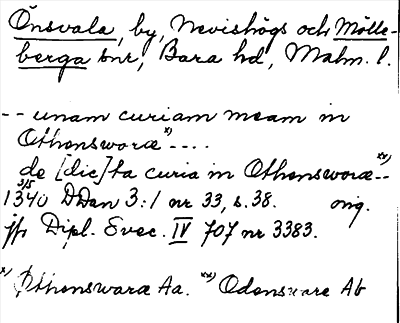 Önsvala, by, Nevishögs och Mölle-
berga snr, Bara hd, Malm. l.
-- unam curiam meam in
Othenswaræ x) ----
de [dic]ta curia in Othenswaræ xx) --
3/5
1340 DDan 3:1 nr 33, s. 38. orig.
jfr Dipl. Svec. IV 707 nr 3383.
x) Othenswara Aa. xx) Odensuare Ab